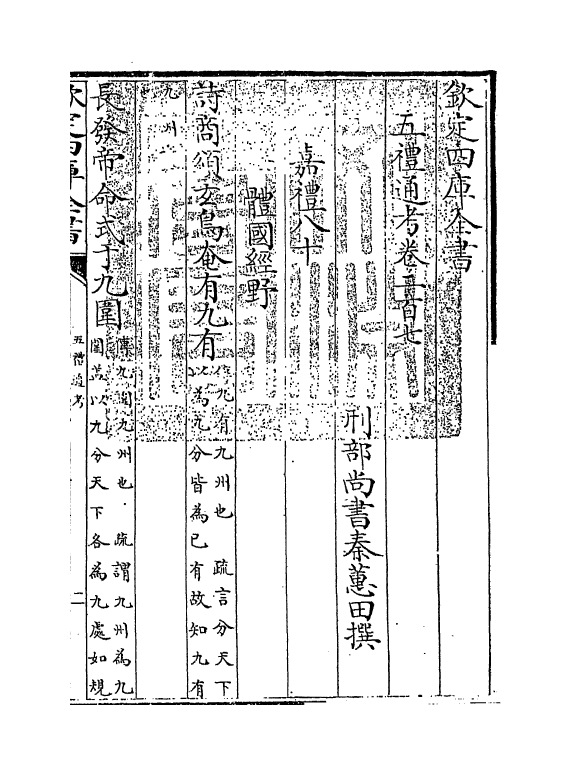 欽定四庫全書
五禮通考卷二百七
刑部尚書秦蕙田撰
嘉禮八十
體國經野
詩商頌玄鳥奄有九有傳九有九州也 疏言分天下
以為九分皆為已有故知九有
九州
長發帝命式于九圍傳九圍九州也 疏謂九州為九
圍蓋以九分天下各為九處如規
欽定四庫全書
五禮通考
二